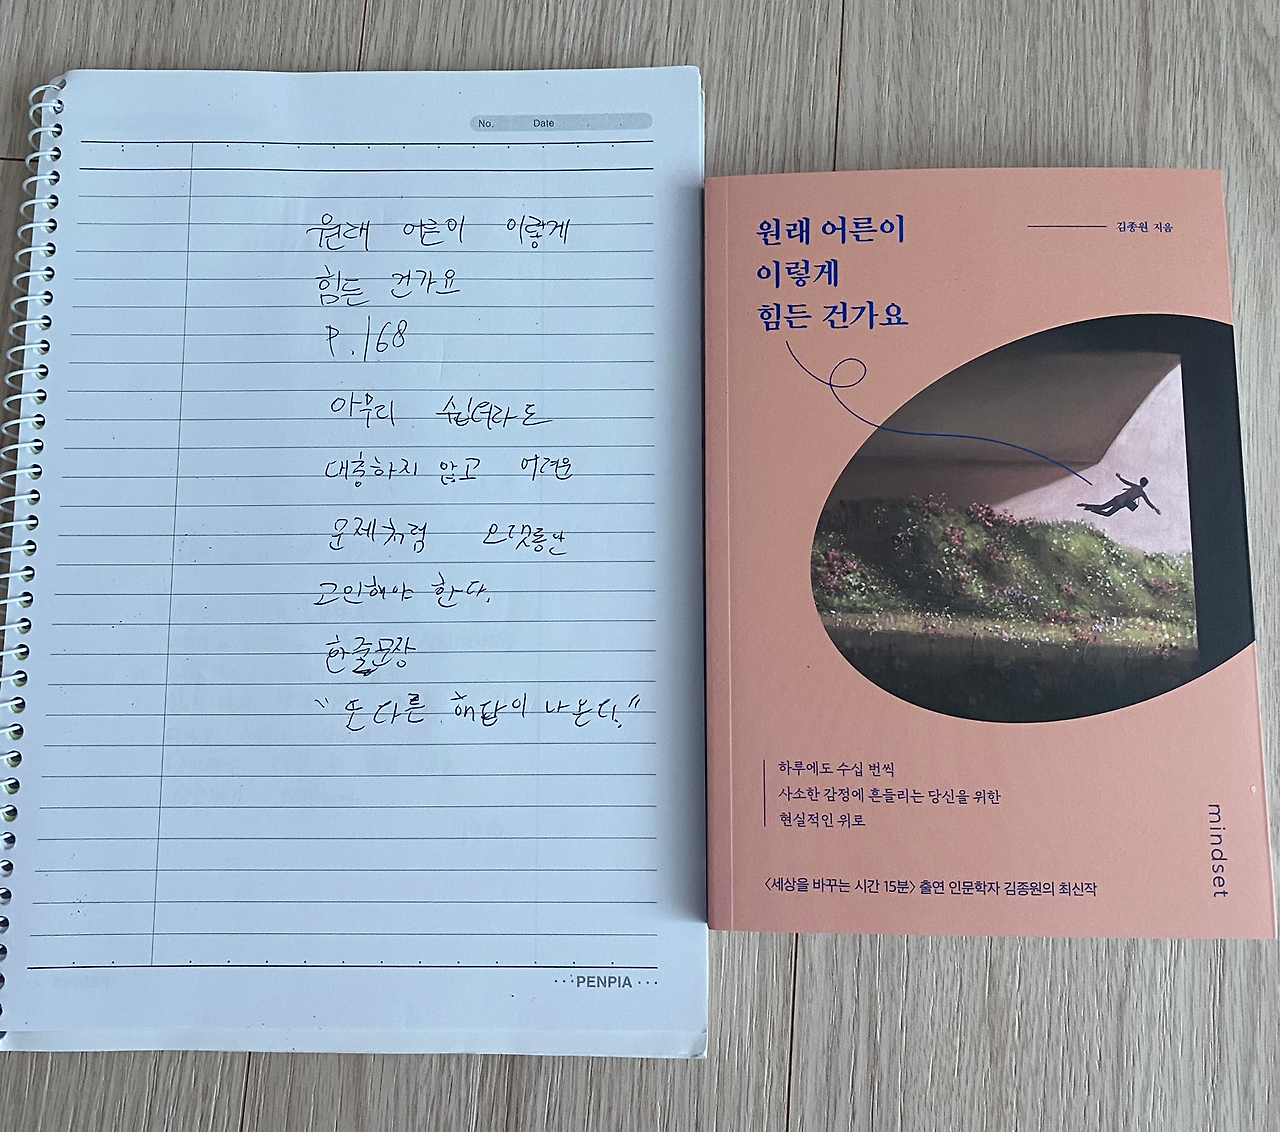 No. Date
원래 어른이 이렇게
힘든 건가요
P.168
아무리 쉽더라도
대충하지 않고 어려운
문제처럼 오랫동안
고민해야 한다.
한줄문장
"또 다른 해답이 나온다."
PENPIA
원래 어른이
이렇게
힘든 건가요
김종원 지음
하루에도 수십 번씩
사소한 감정에 흔들리는 당신을 위한
현실적인 위로
<세상을 바꾸는 시간 15분> 출연 인문학자 김종원의 최신작
mindset